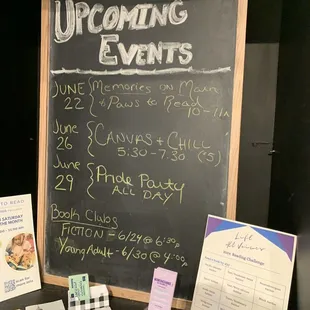 UPCOMING
EVENTS
JUNE 22 { Memories on Main
+ Paws to Read
10-11
June 26 { Canvas + Chill
5:30-7:30
June 29 { Pride Party
ALL DAY
Book Clubs
FICTION = 6/24 @ 6:30
Young Adult - 6/30 @ 4:00
TO READ
SATURDAY
THE MONTH
Reading Challenge